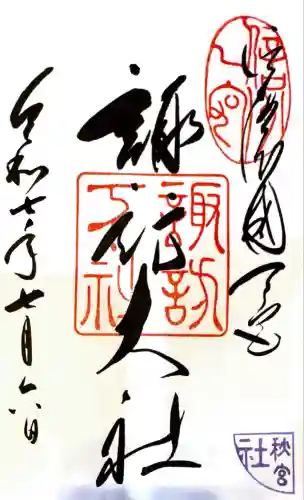 信濃國一之宮
信州一之宮
諏訪大社
諏訪大社
令和七年七月六日
秋宮
社